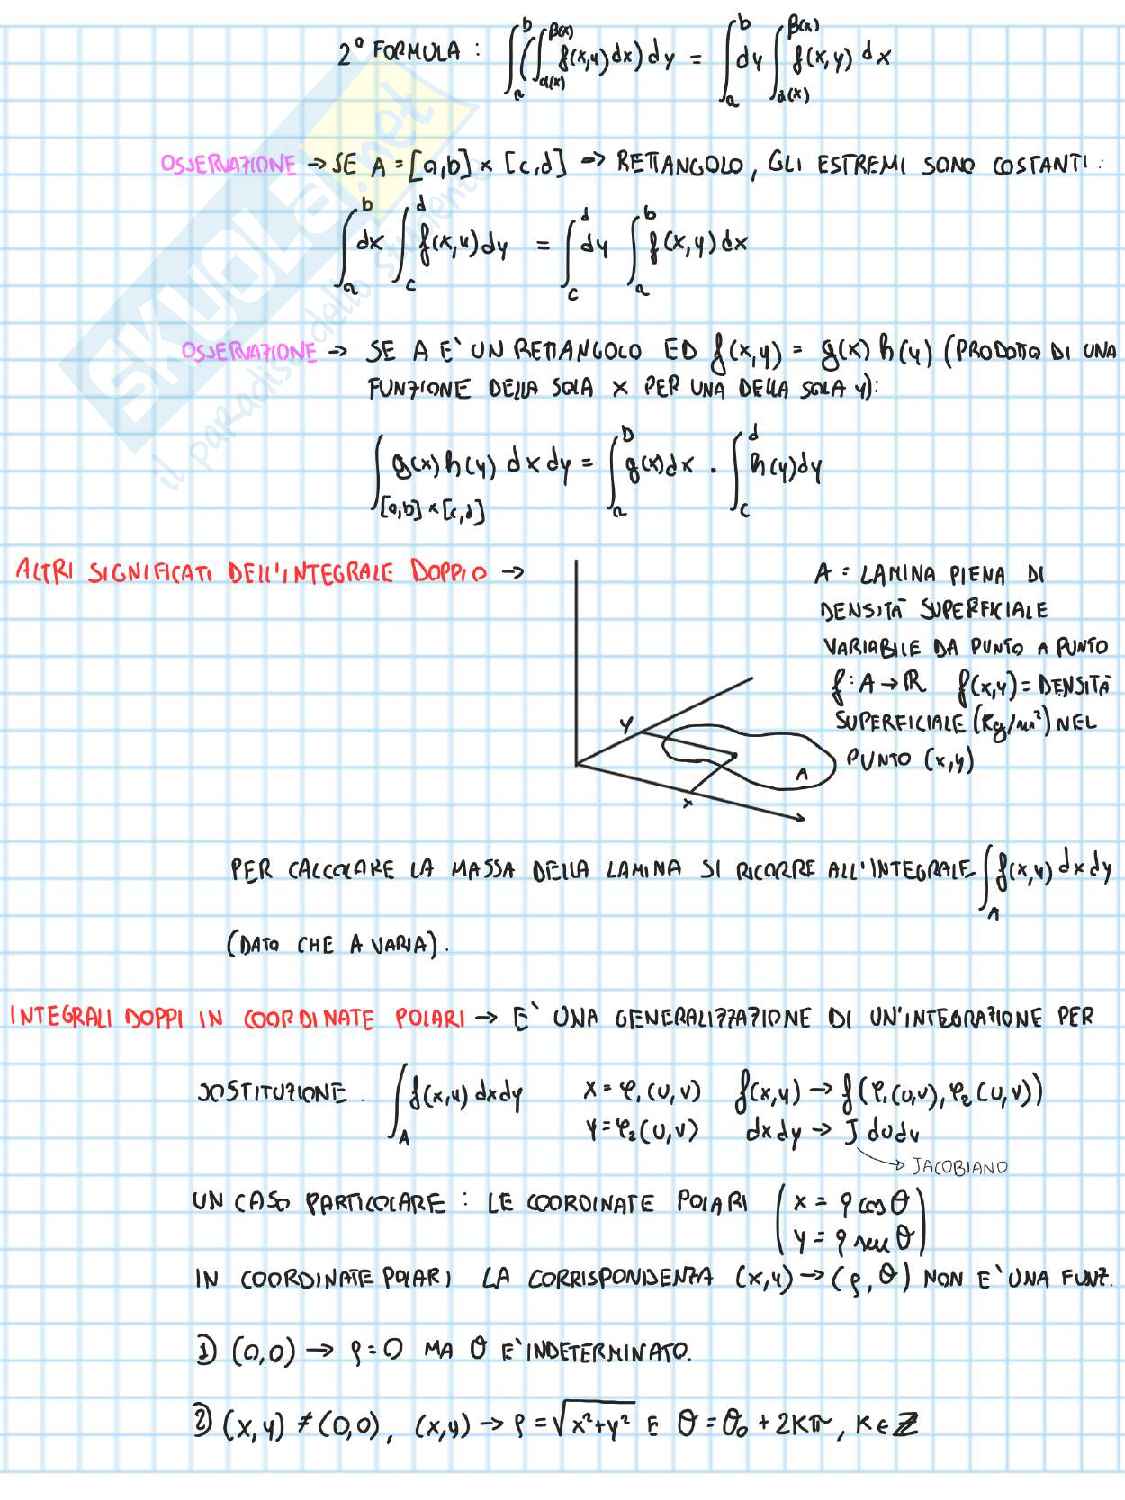 2° FORMULA: ∫_a^b (∫_{α(x)}^{β(x)} f(x,y) dx) dy = ∫_a^b dy ∫_{α(x)}^{β(x)} f(x,y) dx
OSSERVAZIONE → SE A = [a,b] × [c,d] → RETTANGOLO, GLI ESTREMI SONO COSTANTI:
∫_a^b dx ∫_c^d f(x,y) dy = ∫_c^d dy ∫_a^b f(x,y) dx
OSSERVAZIONE → SE A E' UN RETTANGOLO ED f(x,y) = g(x) h(y) (PRODOTTO DI UNA
FUNZIONE DELLA SOLA x PER UNA DELLA SOLA y):
∫_{[a,b]×[c,d]} g(x) h(y) dx dy = ∫_a^b g(x) dx · ∫_c^d h(y) dy
ALTRI SIGNIFICATI DELL'INTEGRALE DOPPIO →
A = LAMINA PIENA DI
DENSITÀ SUPERFICIALE
VARIABILE DA PUNTO A PUNTO
f: A → ℝ f(x,y) = DENSITÀ
SUPERFICIALE (Kg/m²) NEL
PUNTO (x,y)
y
A
x
PER CALCOLARE LA MASSA DELLA LAMINA SI RICORRE ALL'INTEGRALE ∫_A f(x,y) dx dy
(DATO CHE A VARIA).
INTEGRALI DOPPI IN COORDINATE POLARI → E' UNA GENERALIZZAZIONE DI UN'INTEGRAZIONE PER
SOSTITUZIONE. ∫_A f(x,y) dxdy x = φ₁(u,v) f(x,y) → f(φ₁(u,v), φ₂(u,v))
y = φ₂(u,v) dx dy → J du dv
→ JACOBIANO
UN CASO PARTICOLARE: LE COORDINATE POLARI ( x = ρ cos θ
y = ρ sen θ )
IN COORDINATE POLARI LA CORRISPONDENZA (x,y) → (ρ, θ) NON E' UNA FUNZ.
1) (0,0) → ρ = 0 MA θ E' INDETERMINATO.
2) (x,y) ≠ (0,0), (x,y) → ρ = √(x²+y²) E θ = θ₀ + 2Kπ, K ∈ ℤ
SKUOLA.net
il paradiso dello studente